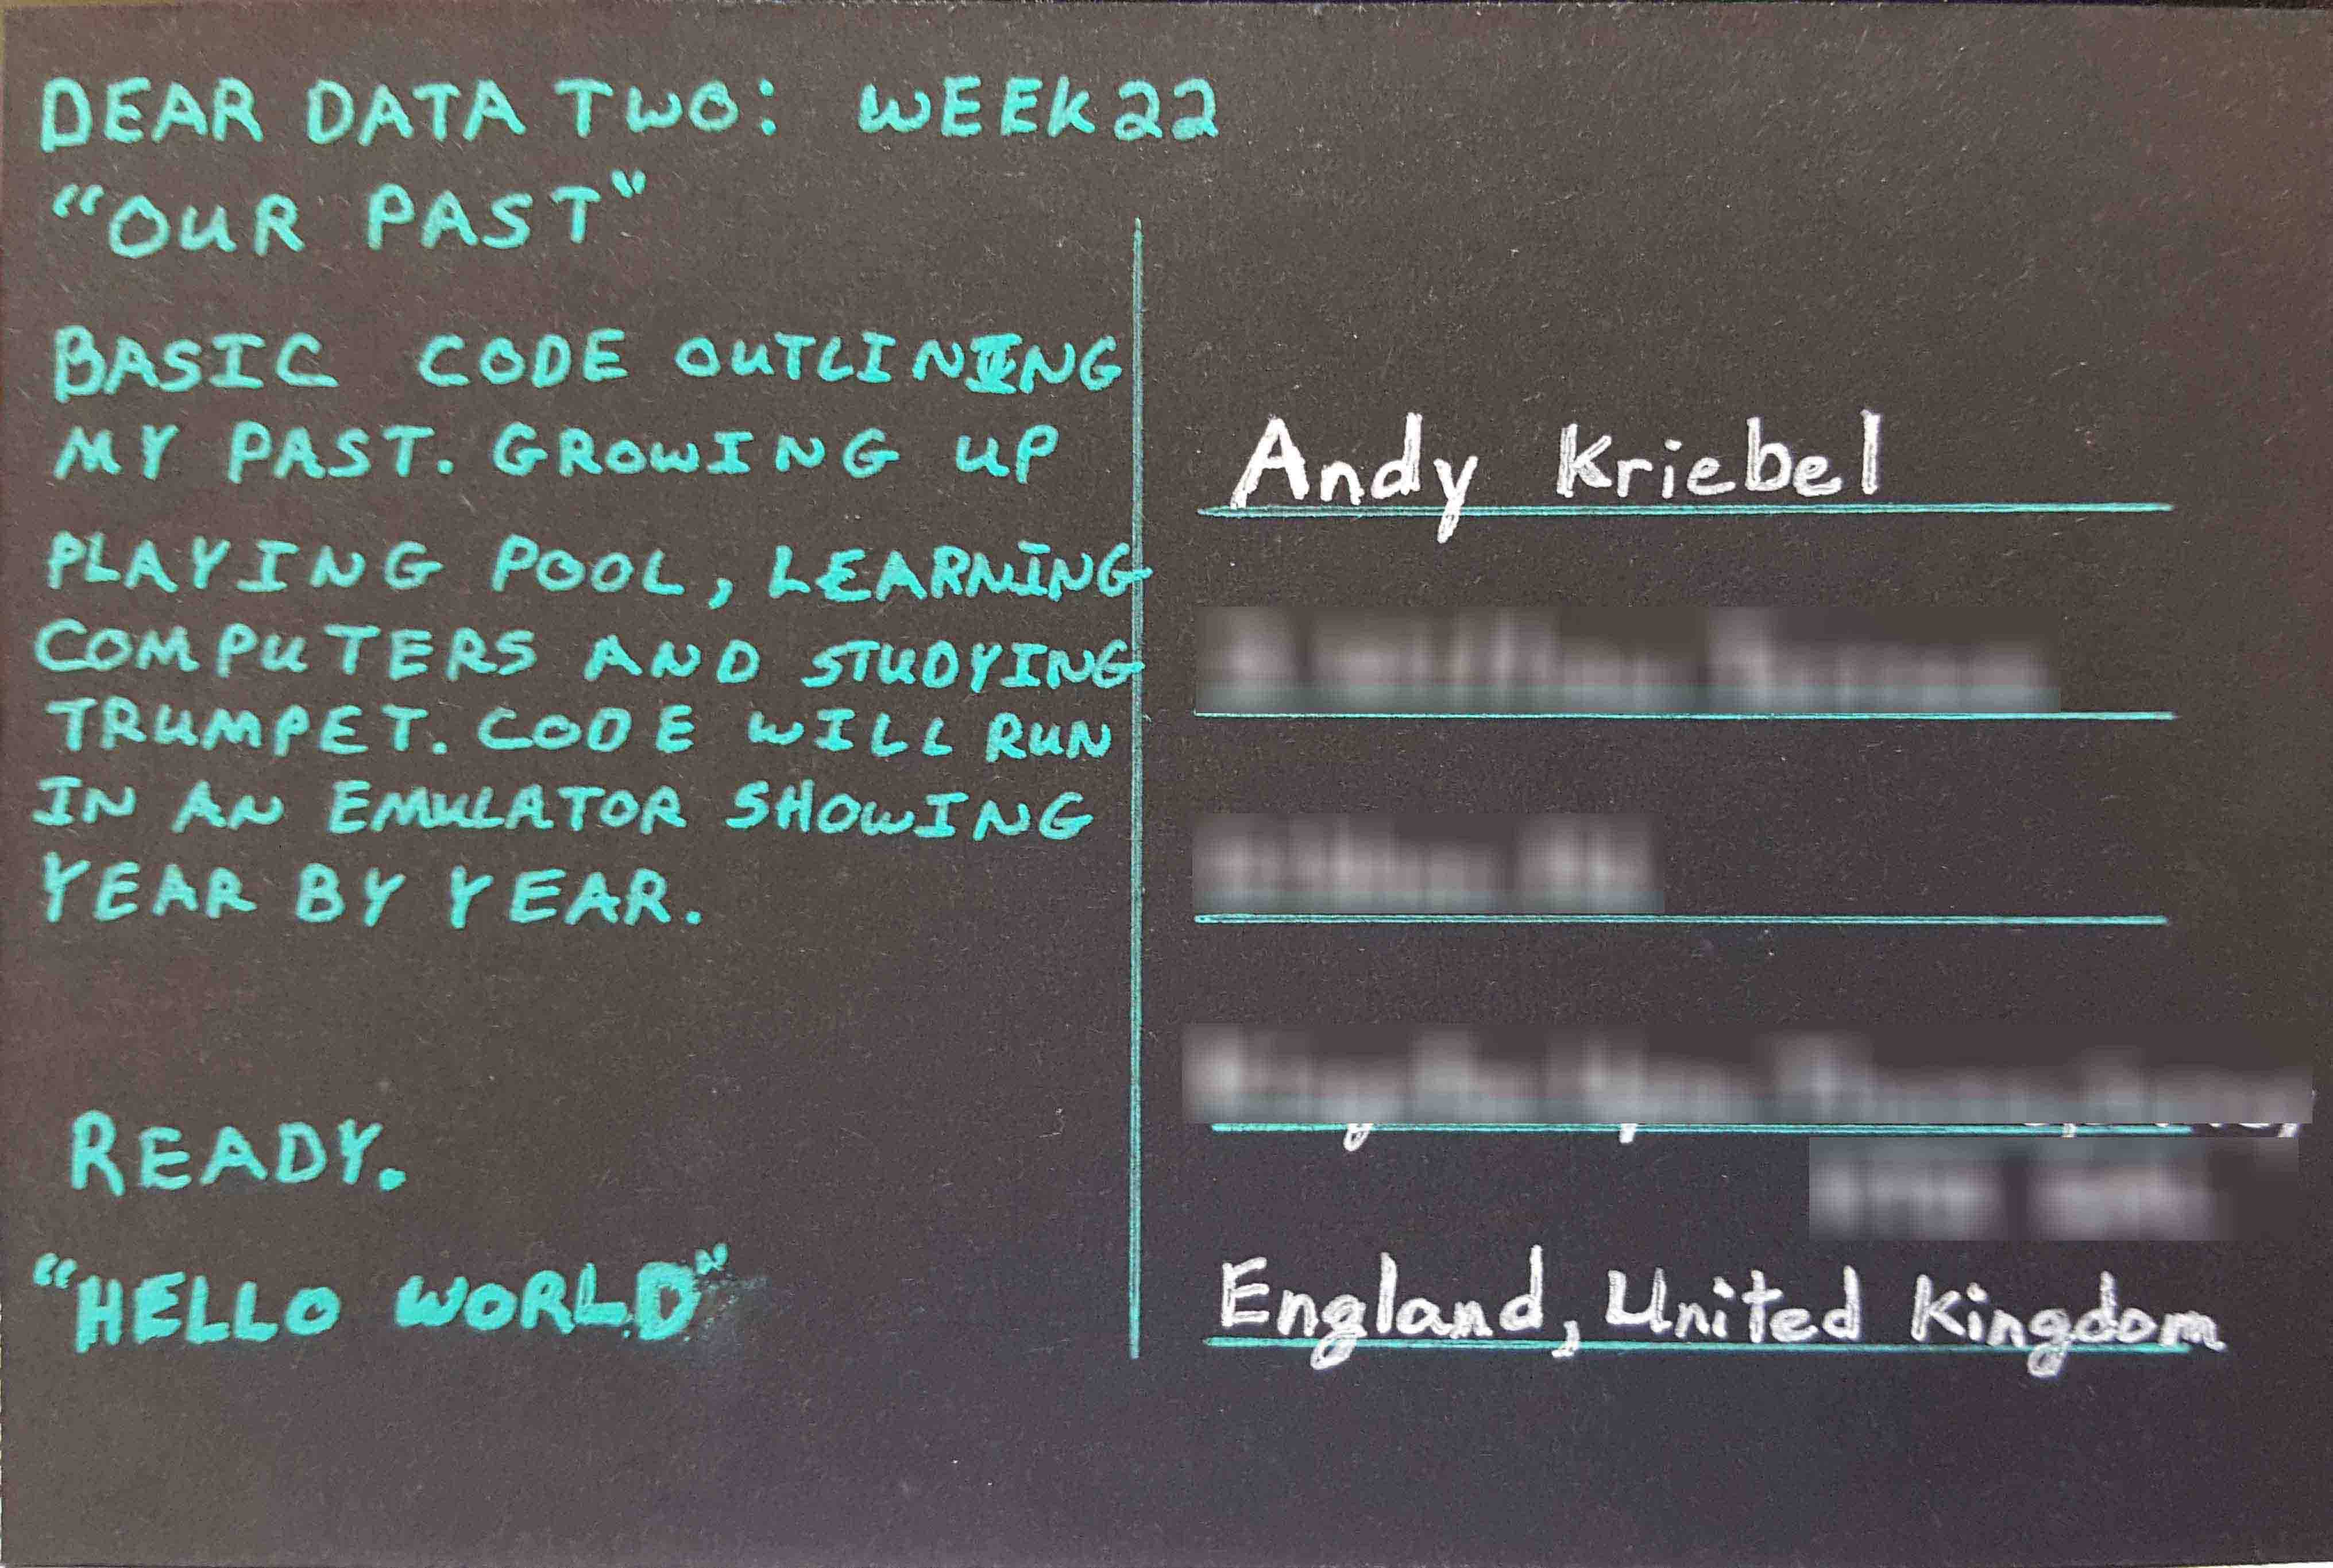 DEAR DATA TWO: WEEK 22
"OUR PAST"
BASIC CODE OUTLINING
MY PAST. GROWING UP
PLAYING POOL, LEARNING
COMPUTERS AND STUDYING
TRUMPET. CODE WILL RUN
IN AN EMULATOR SHOWING
YEAR BY YEAR.
READY.
"HELLO WORLD"
Andy Kriebel
England, United Kingdom